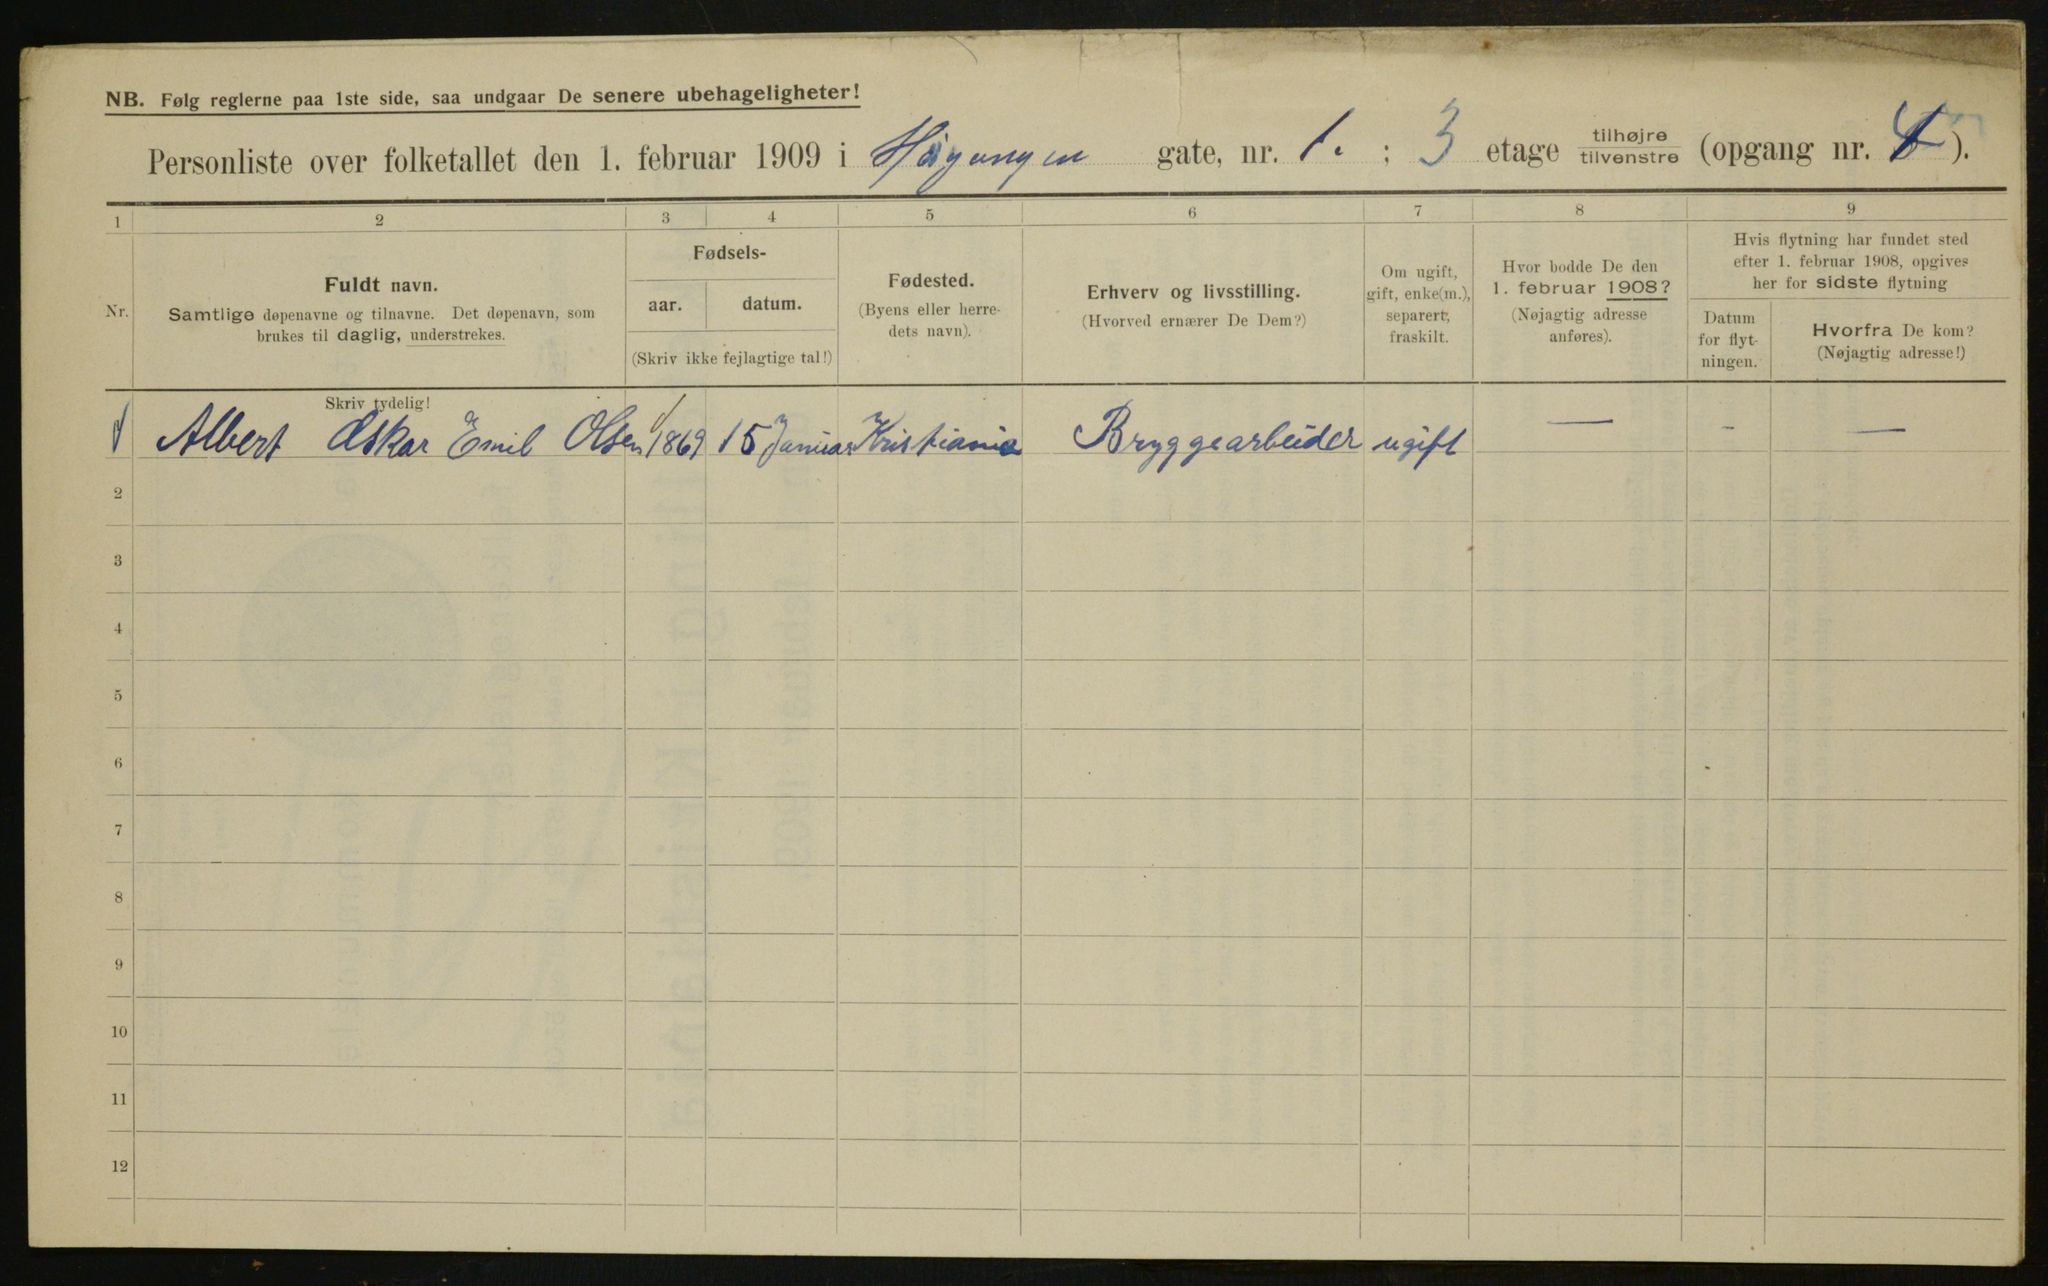 NB. Følg reglerne paa 1ste side, saa undgaar De senere ubehageligheter!
Personliste over folketallet den 1. februar 1909 i Høyungen gate, nr. 1. ; 3 etage tilhøjre/tilvenstre (opgang nr. ).
1 2 3 4 5 6 7 8 9
Nr.
Fuldt navn.
Samtlige døpenavne og tilnavne. Det døpenavn, som
brukes til daglig, understrekes.
Fødsels-
aar. datum.
(Skriv ikke fejlagtige tal!)
Fødested.
(Byens eller herre-
dets navn).
Erhverv og livsstilling.
(Hvorved ernærer De Dem?)
Om ugift,
gift, enke(m.),
separert,
fraskilt.
Hvor bodde De den
1. februar 1908?
(Nøjagtig adresse
anføres).
Hvis flytning har fundet sted
efter 1. februar 1908, opgives
her for sidste flytning
Datum
for flyt-
ningen.
Hvorfra De kom?
(Nøjagtig adresse!)
Skriv tydelig!
1 Albert Oskar Emil Olsen 1869 15 Januar Kristiania Bryggearbeider ugift — – —
2
3
4
5
6
7
8
9
10
11
12